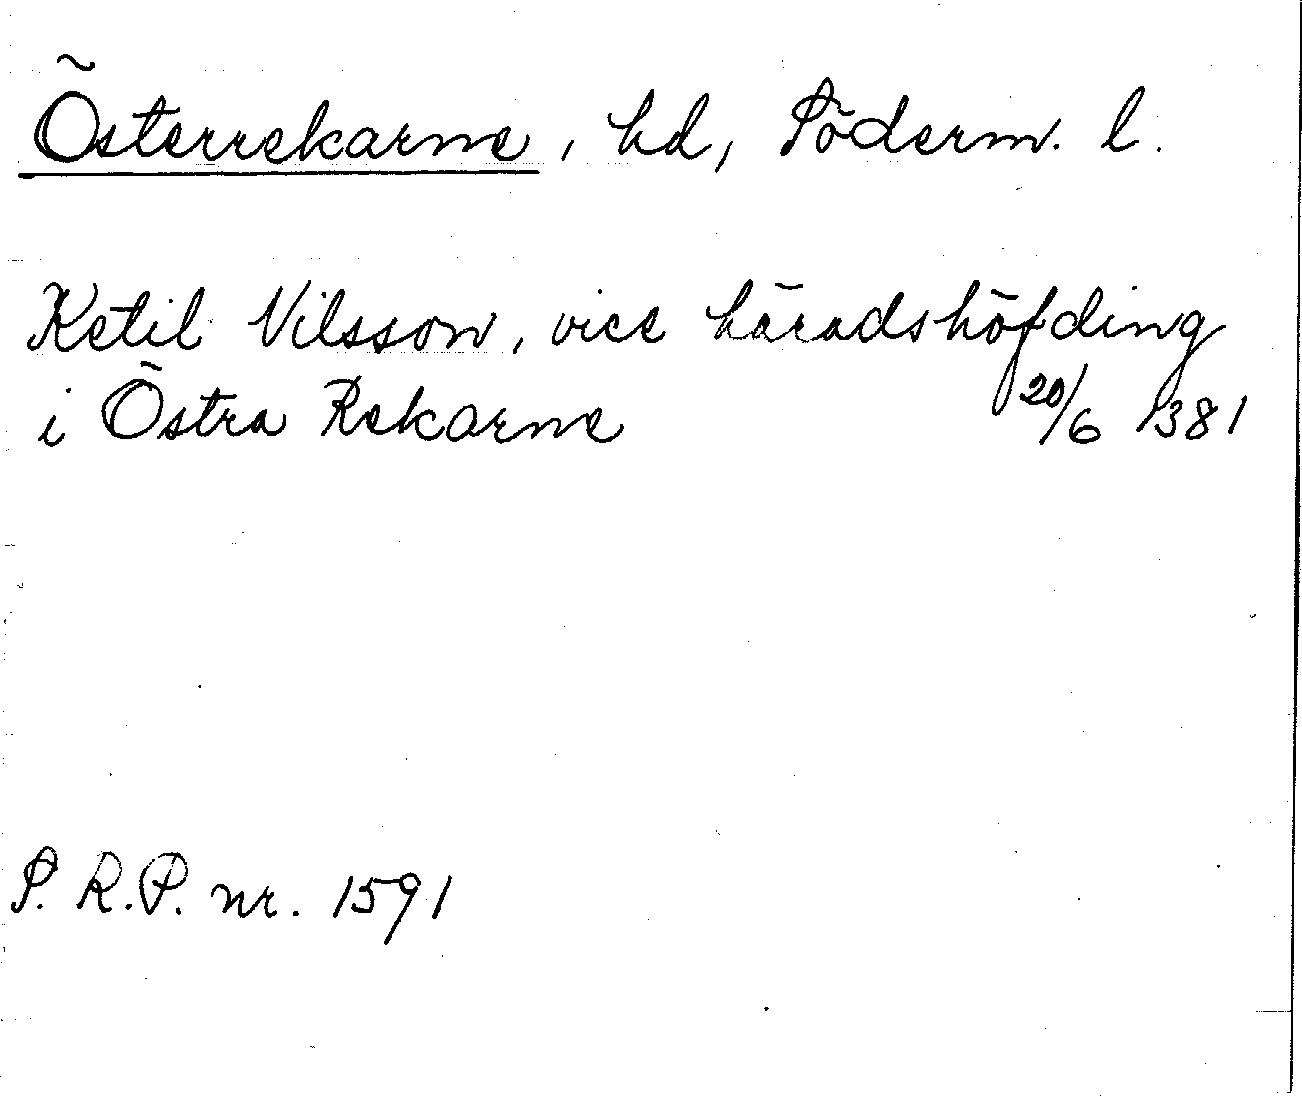 Österrekarne, hd, Söderm. l.
Ketil Nilsson, vice häradshöfding
i Östra Rekarne 20/6 1381
S. R.P. nr. 1591